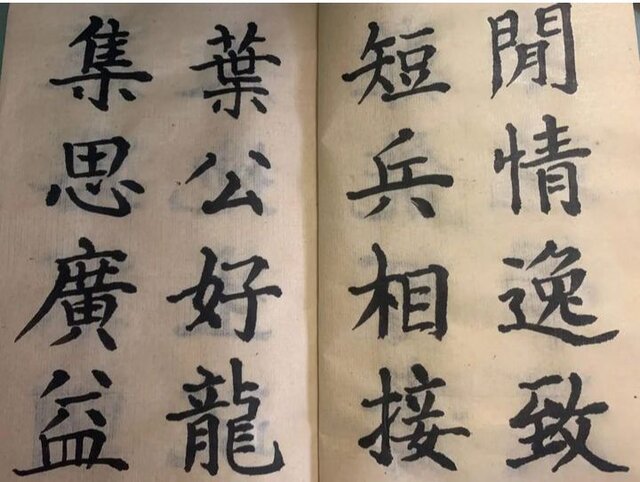 閒情逸致
短兵相接
葉公好龍
集思廣益